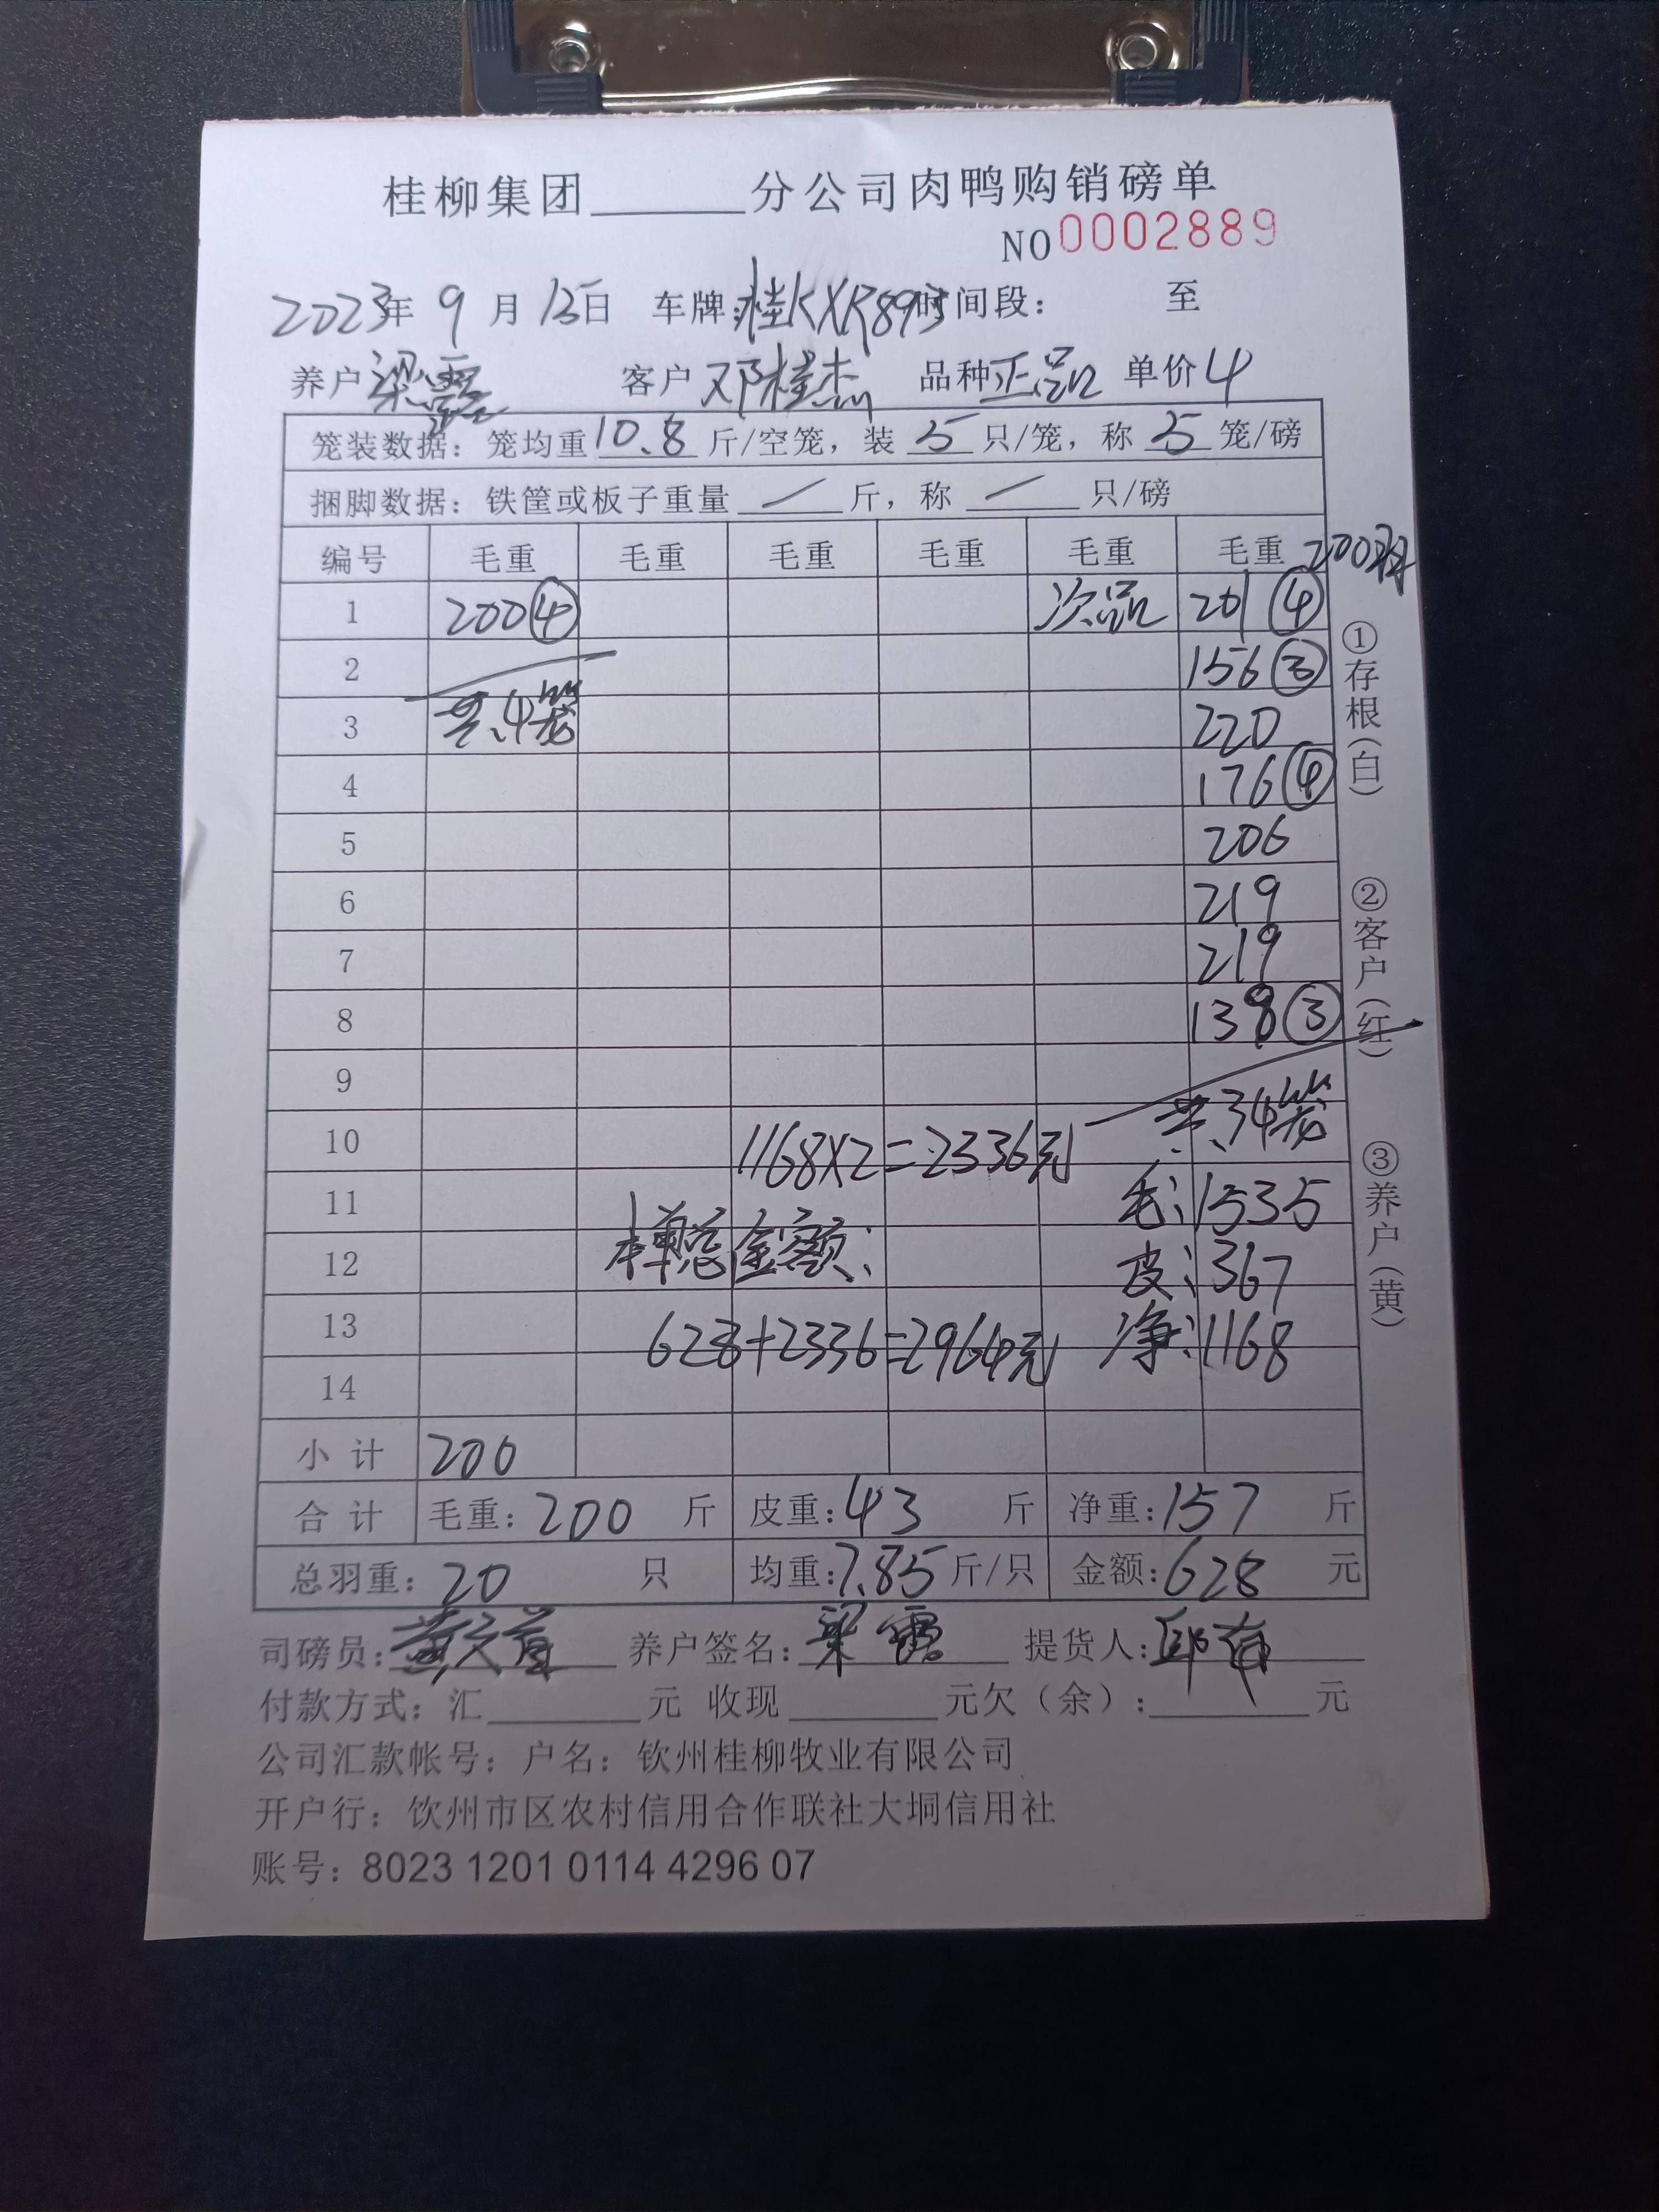 桂柳集团______分公司肉鸭购销磅单
NO 0002889
2023年 9 月 15日 车牌:桂KXR893 时间段: 至
养户 梁露 客户 邓桂杰 品种 正品 单价 4
笼装数据: 笼均重 10.8 斤/空笼, 装 5 只/笼, 称 5 笼/磅
捆脚数据: 铁筐或板子重量 / 斤, 称 / 只/磅
编号 毛重 毛重 毛重 毛重 毛重 毛重 200羽
1 200④ 次品 201④
2 156③
3 共:4笼 220
4 176④
5 206
6 219
7 219
8 138③
9
10 1168X2=2336元 共:34笼
11 毛:1535
12 本单总金额: 皮:367
13 628+2336=2964元 净:1168
14
小 计 200
合 计 毛重: 200 斤 皮重: 43 斤 净重: 157 斤
总羽重: 20 只 均重: 7.85 斤/只 金额: 628 元
司磅员: 养户签名: 梁露 提货人:
付款方式: 汇______元 收现______元欠(余):______元
公司汇款帐号: 户名: 钦州桂柳牧业有限公司
开户行: 钦州市区农村信用合作联社大垌信用社
账号: 8023 1201 0114 4296 07
①存根(白)
②客户(红)
③养户(黄)